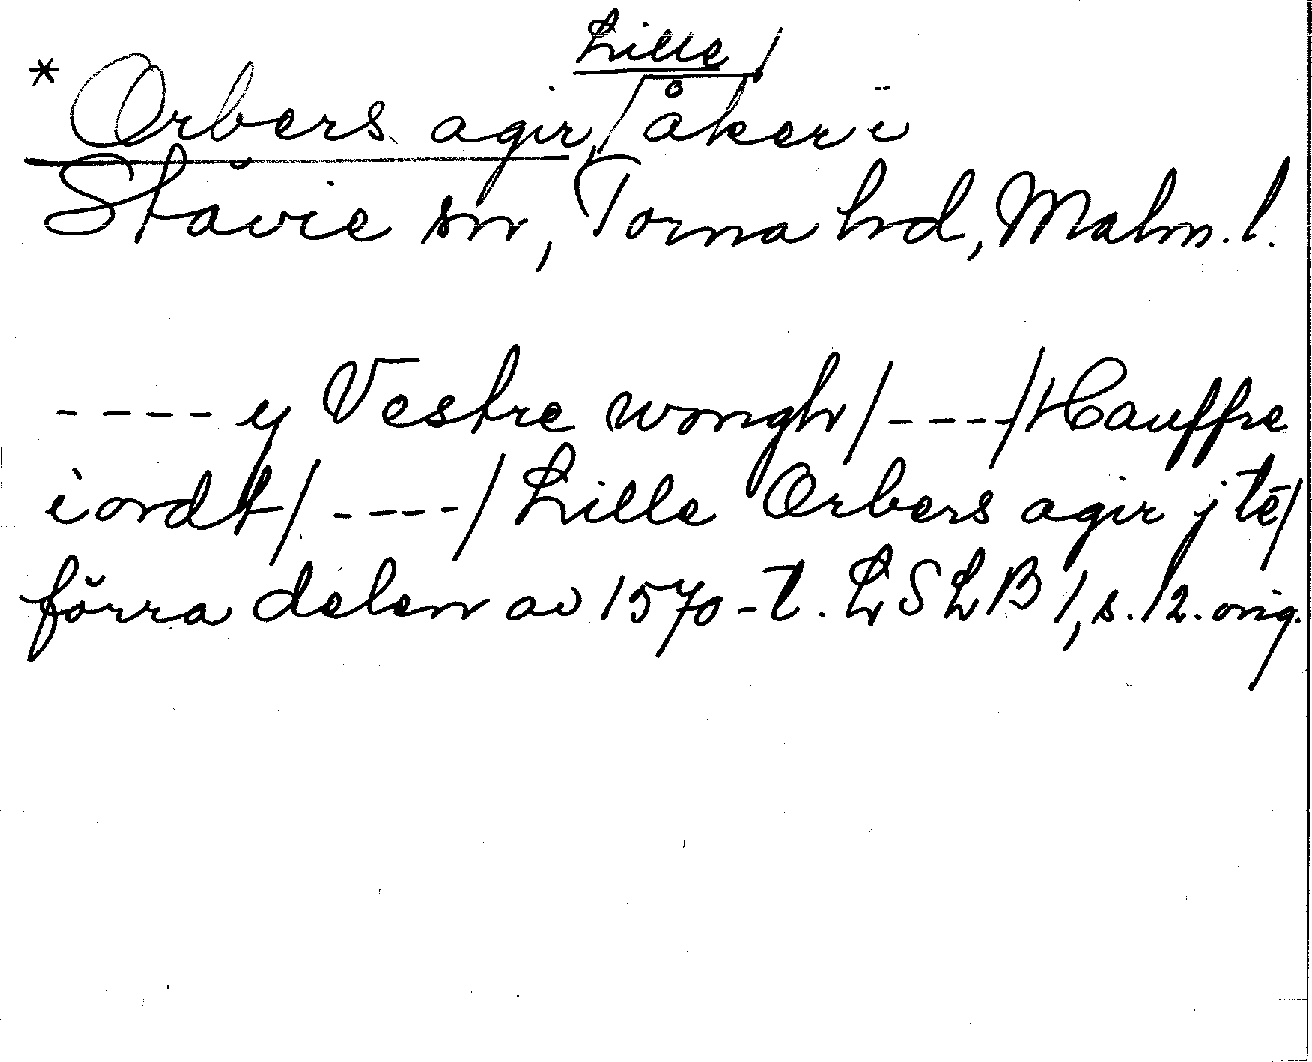 Lille/
*Orbers agir,/åker i
Stävie sn, Torna hd, Malm. l.
---- y Vestre wongh/----/Hauffre
iordt/----/Lille Orbers agir j tē/
förra delen av 1570-t. LSLB 1, s. 12. orig.